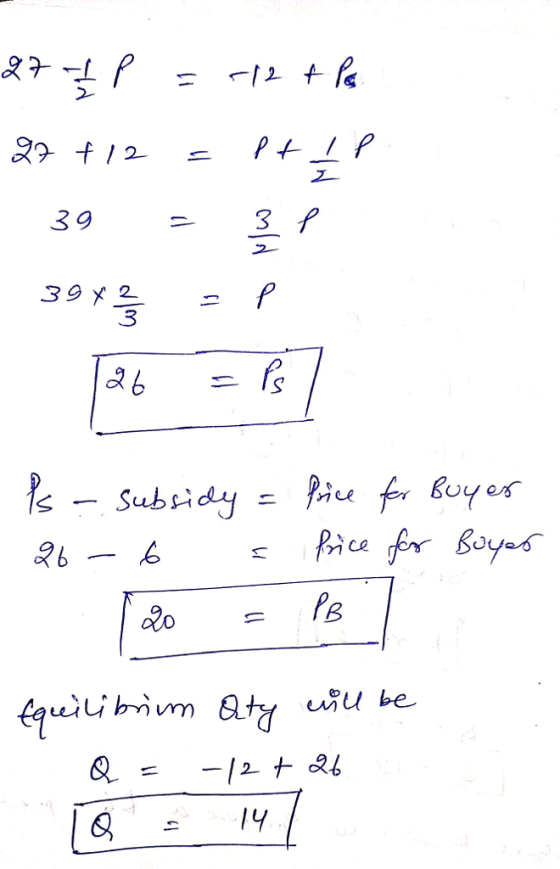 27 - 1/2 P = -12 + Ps
27 + 12 = P + 1/2 P
39 = 3/2 P
39 × 2/3 = P
26 = Ps
Ps - Subsidy = Price for Buyer
26 - 6 = Price for Buyer
20 = PB
Equilibrium Qty will be
Q = -12 + 26
Q = 14